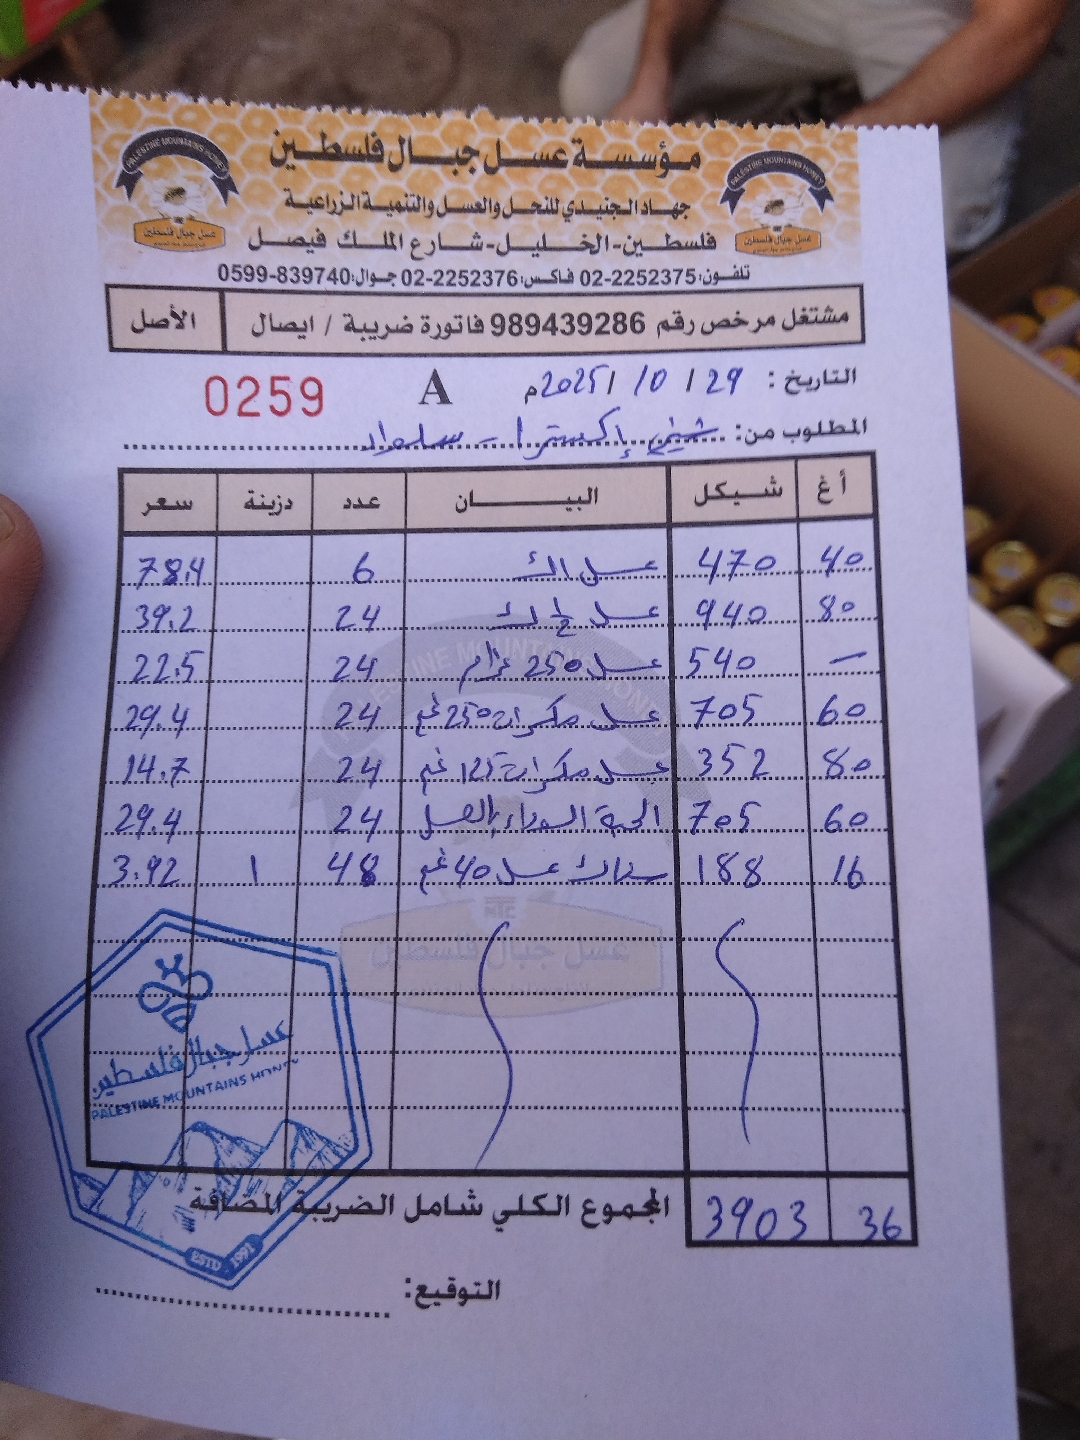 PALESTINE MOUNTAINS HONEY
عسل جبال فلسطين
PALESTINE MOUNTAINS HONEY
عسل جبال فلسطين
مؤسسة عسل جبال فلسطين
جهاد الجنيدي للنحل والعسل والتنمية الزراعية
فلسطين-الخليل-شارع الملك فيصل
تلفون:02-2252375 فاكس:02-2252376 جوال:0599-839740
مشتغل مرخص رقم 989439286 فاتورة ضريبة / ايصال الأصل
التاريخ: 29 / 10 / 2025م A 0259
المطلوب من: شيني إكسترا - سلواد
أغ شيكل البيـــــــان عدد دزينة سعر
40 470 عسل 1ك 6 78.4
80 940 عسل ½ ك 24 39.2
— 540 عسل 250 غرام 24 22.5
60 705 عسل مكسرات 250 غم 24 29.4
80 352 عسل مكسرات 125 غم 24 14.7
60 705 الحبة السوداء بالعسل 24 29.4
16 188 سناك عسل 40 غم 48 1 3.92
عسل جبال فلسطين
عسل جبال فلسطين
PALESTINE MOUNTAINS HONEY
المجموع الكلي شامل الضريبة المضافة 3903 36
ESTD 1991
التوقيع: